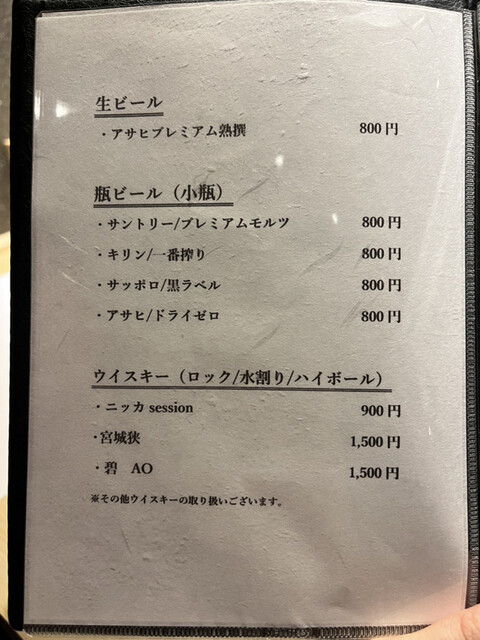 生ビール
・アサヒプレミアム熟撰 800円
瓶ビール（小瓶）
・サントリー/プレミアムモルツ 800円
・キリン/一番搾り 800円
・サッポロ/黒ラベル 800円
・アサヒ/ドライゼロ 800円
ウイスキー（ロック/水割り/ハイボール）
・ニッカ session 900円
・宮城狭 1,500円
・碧　AO 1,500円
※その他ウイスキーの取り扱いございます。